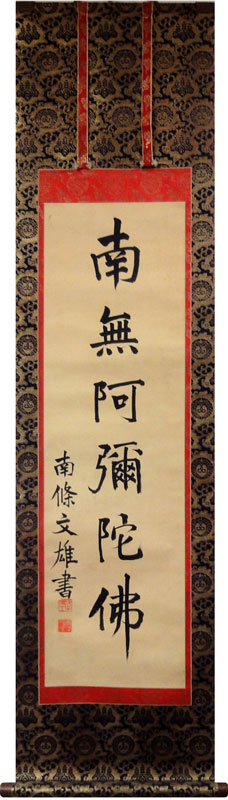 南無阿彌陀佛
南條文雄書